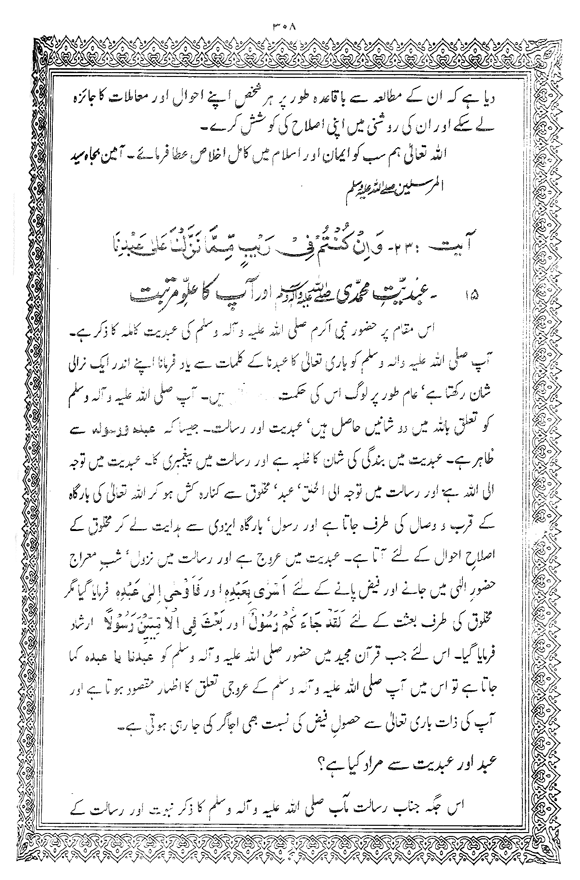 ۳۰۸
دیا ہے کہ ان کے مطالعہ سے باقاعدہ طور پر ہر شخص اپنے احوال اور معاملات کا جائزہ
لے سکے اور ان کی روشنی میں اپنی اصلاح کی کوشش کرے۔
اللہ تعالیٰ ہم سب کو ایمان اور اسلام میں کامل اخلاص عطا فرمائے۔ آمین بجاہ سید
المرسلین صلی اللہ علیہ وسلم
آیت ۲۳: وَاِنْ کُنْتُمْ فِیْ رَیْبٍ مِّمَّا نَزَّلْنَا عَلٰی عَبْدِنَا
۱۵ ۔عبدیتِ محمدی صلی اللہ علیہ وآلہ وسلم اور آپ کا علوِ مرتبت
اس مقام پر حضور نبی اکرم صلی اللہ علیہ و آلہ وسلم کی عبدیت کاملہ کا ذکر ہے۔
آپ صلی اللہ علیہ وآلہ وسلم کو باری تعالیٰ کا عبدنا کے کلمات سے یاد فرمانا اپنے اندر ایک نرالی
شان رکھتا ہے‘ عام طور پر لوگ اس کی حکمت ہیں۔ آپ صلی اللہ علیہ و آلہ وسلم
کو تعلق باللہ میں دو شانیں حاصل ہیں‘ عبدیت اور رسالت۔ جیسا کہ عبدہ ورسولہ سے
ظاہر ہے۔ عبدیت میں بندگی کی شان کا غلبہ ہے اور رسالت میں پیغمبری کا۔ عبدیت میں توجہ
الی اللہ ہے اور رسالت میں توجہ الی الخلق‘ عبد‘ مخلوق سے کنارہ کش ہو کر اللہ تعالیٰ کی بارگاہ
کے قرب و وصال کی طرف جاتا ہے اور رسول‘ بارگاہ ایزدی سے ہدایت لے کر مخلوق کے
اصلاحِ احوال کے لئے آتا ہے۔ عبدیت میں عروج ہے اور رسالت میں نزول‘ شبِ معراج
حضورِ الٰہی میں جانے اور فیض پانے کے لئے اَسْرٰی بِعَبْدِہٖ اور فَاَوْحٰی اِلٰی عَبْدِہٖ فرمایا گیا مگر
مخلوق کی طرف بعثت کے لئے لَقَدْ جَاءَ کُمْ رَسُوْلٌ اور بَعَثَ فِی الْاُمِّیّٖنَ رَسُوْلًا ارشاد
فرمایا گیا۔ اس لئے جب قرآن مجید میں حضور صلی اللہ علیہ و آلہ وسلم کو عبدنا یا عبدہ کہا
جاتا ہے تو اس میں آپ صلی اللہ علیہ و آلہ وسلم کے عروجی تعلق کا اظہار مقصود ہوتا ہے اور
آپ کی ذات باری تعالیٰ سے حصولِ فیض کی نسبت بھی اجاگر کی جا رہی ہوتی ہے۔
عبد اور عبدیت سے مراد کیا ہے؟
اس جگہ جناب رسالت مآب صلی اللہ علیہ و آلہ وسلم کا ذکر نبوت اور رسالت کے